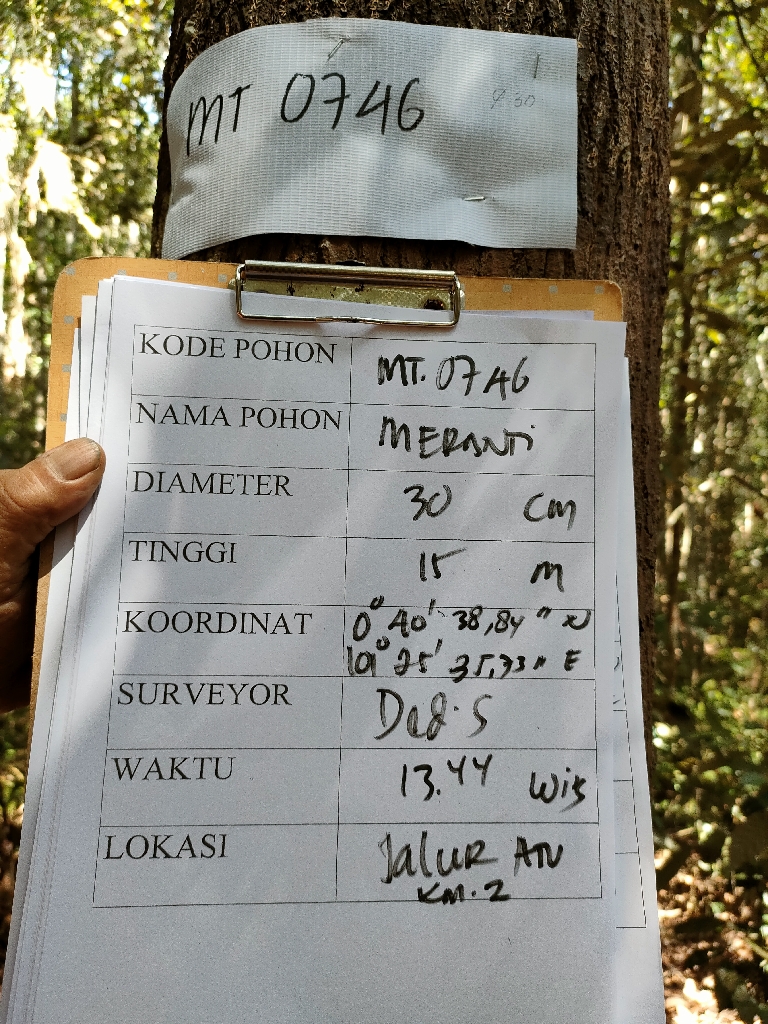 MT 0746
KODE POHON MT. 0746
NAMA POHON MERANTI
DIAMETER 30 Cm
TINGGI 15 m
KOORDINAT 0° 40' 38,84" N
101° 25' 35,73" E
SURVEYOR Dedi S
WAKTU 13.44 Wib
LOKASI Jalur ATV
KM. 2